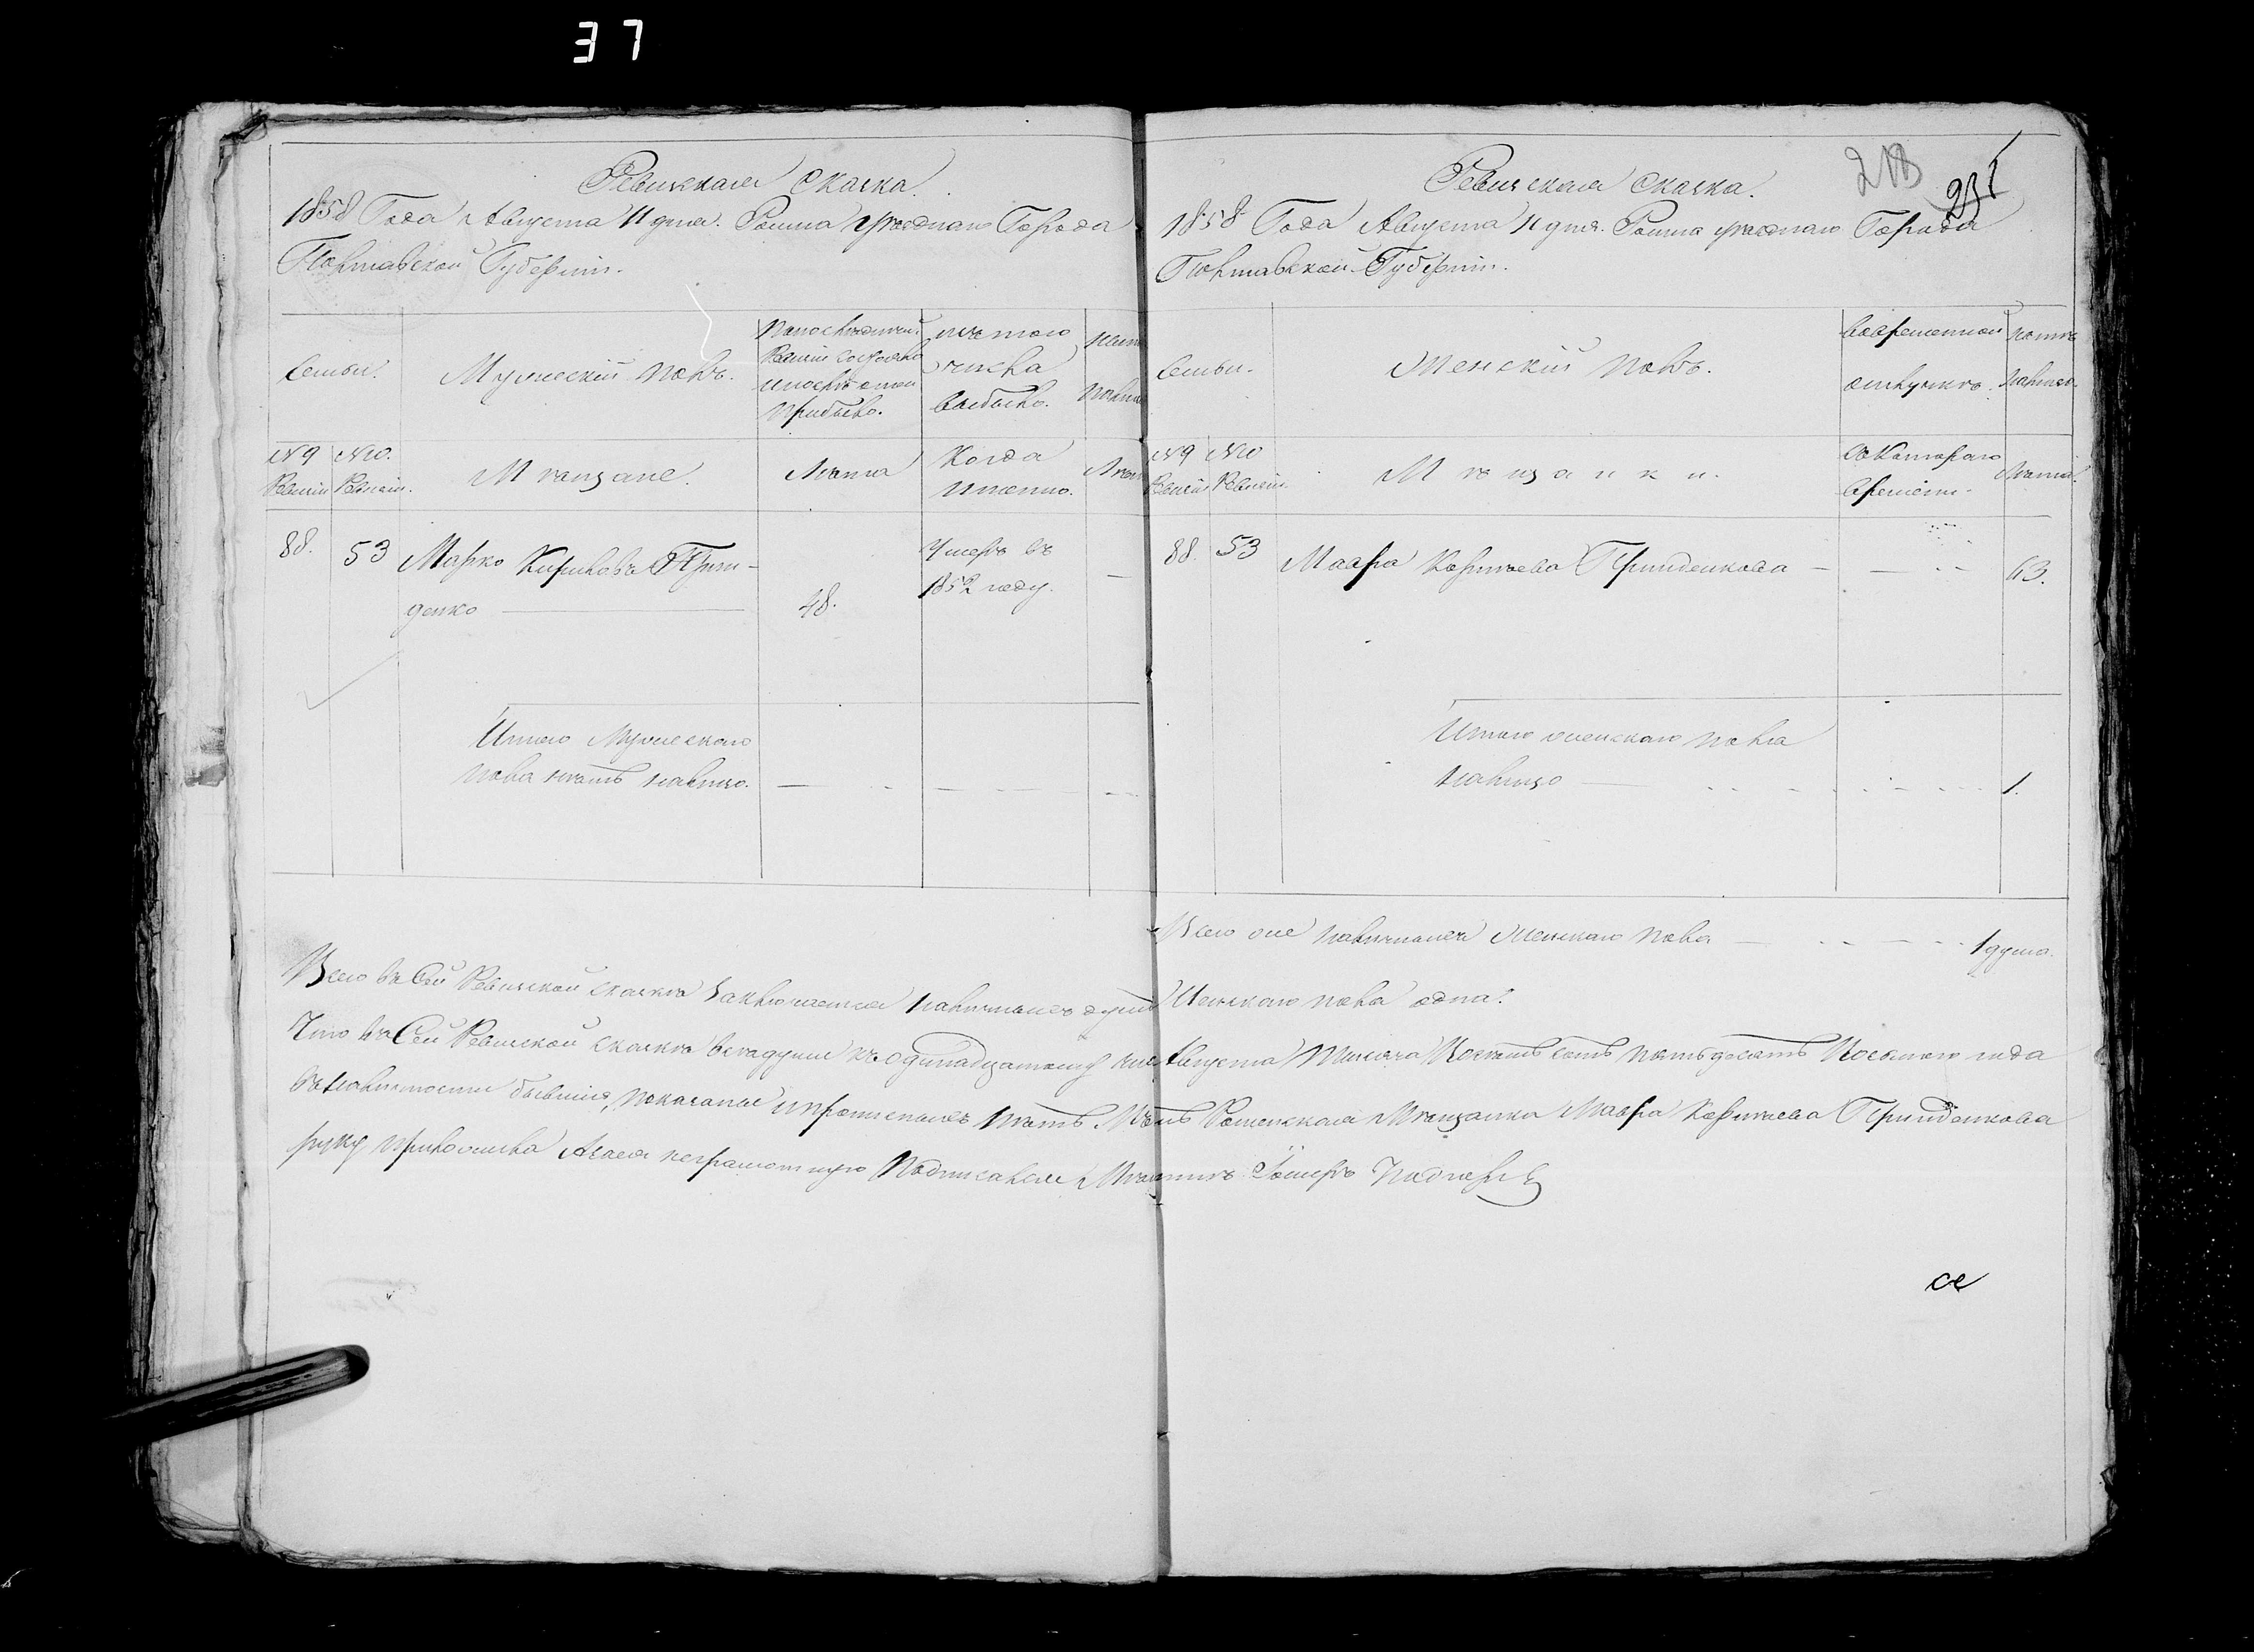 37
Ревижская скаска.
1858 Года Августа 11 дня. Ромна уѣзднаго Города
Полтавской Губерніи.
Семьи.
Мужескій полъ.
По последней
Ревизіи состояло
и послѣ оной
прибыло.
изъ того
числа
выбыло.
№ 9
Ревизіи
№ 10.
Ревизіи.
Мѣщане.
Лѣта
Когда
именно.
88.
53
Марко Кириловъ Грин-
денко
48.
Умеръ въ
1852 году.
Итого Мужескаго
пола нѣтъ налицо.
Ревижская скаска.
218
231
1858 Года Августа 11 дня. Ромна уѣзднаго Города
Полтавской Губерніи.
Семьи.
Женскій полъ.
Во временной
отлучкѣ.
№ 9
Ревизіи
№ 10
Ревизіи.
Мѣщанки.
Съ котораго
времѣни.
Лѣта.
88.
53
Мавра Корнѣева Гринденкова
63.
Итого женскаго пола
налицо
1.
Всего же наличныхъ женскаго пола
1 душа.
Всего въ Сей Ревижской скаскѣ заключается наличныхъ душъ Женскаго пола одна.
Что въ Сей Ревижской скаскѣ всѣ души къ одинадцатому Августа Тысяча Восемъ сотъ пятьдесятъ Восьмаго года
въ наличности бывшія, показаны и прописныхъ нѣтъ. Роменская Мѣщанка Мавра Корнѣева Гринденкова
руку приложила А за нея неграмотную Подписался Мѣщанинъ